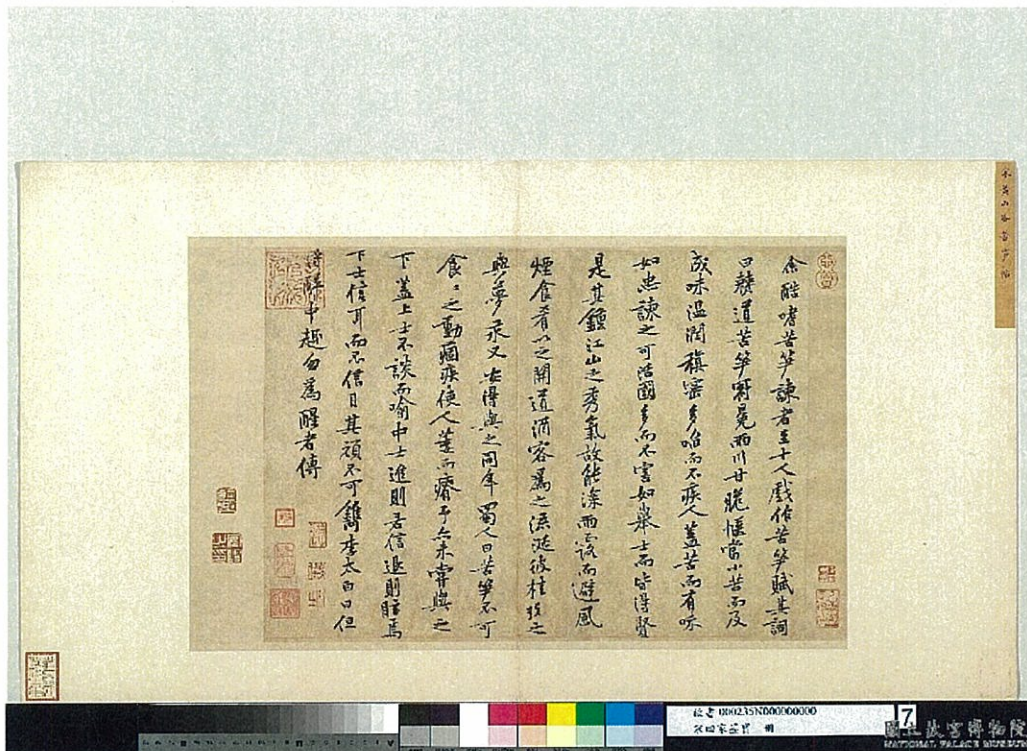 宋黃山谷苦筍帖
余酷嗜苦筍諫者至十人戲作苦筍賦其詞
曰僰道苦筍冠冕兩川甘脆愜當小苦而及
成味溫潤縝密多啗而不疾人蓋苦而有味
如忠諫之可活國多而不害如舉士而皆得賢
是其鍾江山之秀氣故能深雨露而避風
煙食肴以之開道酒客為之流涎彼桂玫之
與夢永又安得與之同年蜀人曰苦筍不可
食〻之動痼疾使人萎而瘠予亦未嘗與之
下蓋上士不談而喻中士進則若信退則眩焉
下士信耳而不信目其頑不可鐫李太白曰但
得醉中趣勿為醒者傳
故書 000235N000000000
宋四家墨寶 冊
7
國立故宮博物院
NATIONAL PALACE MUSEUM